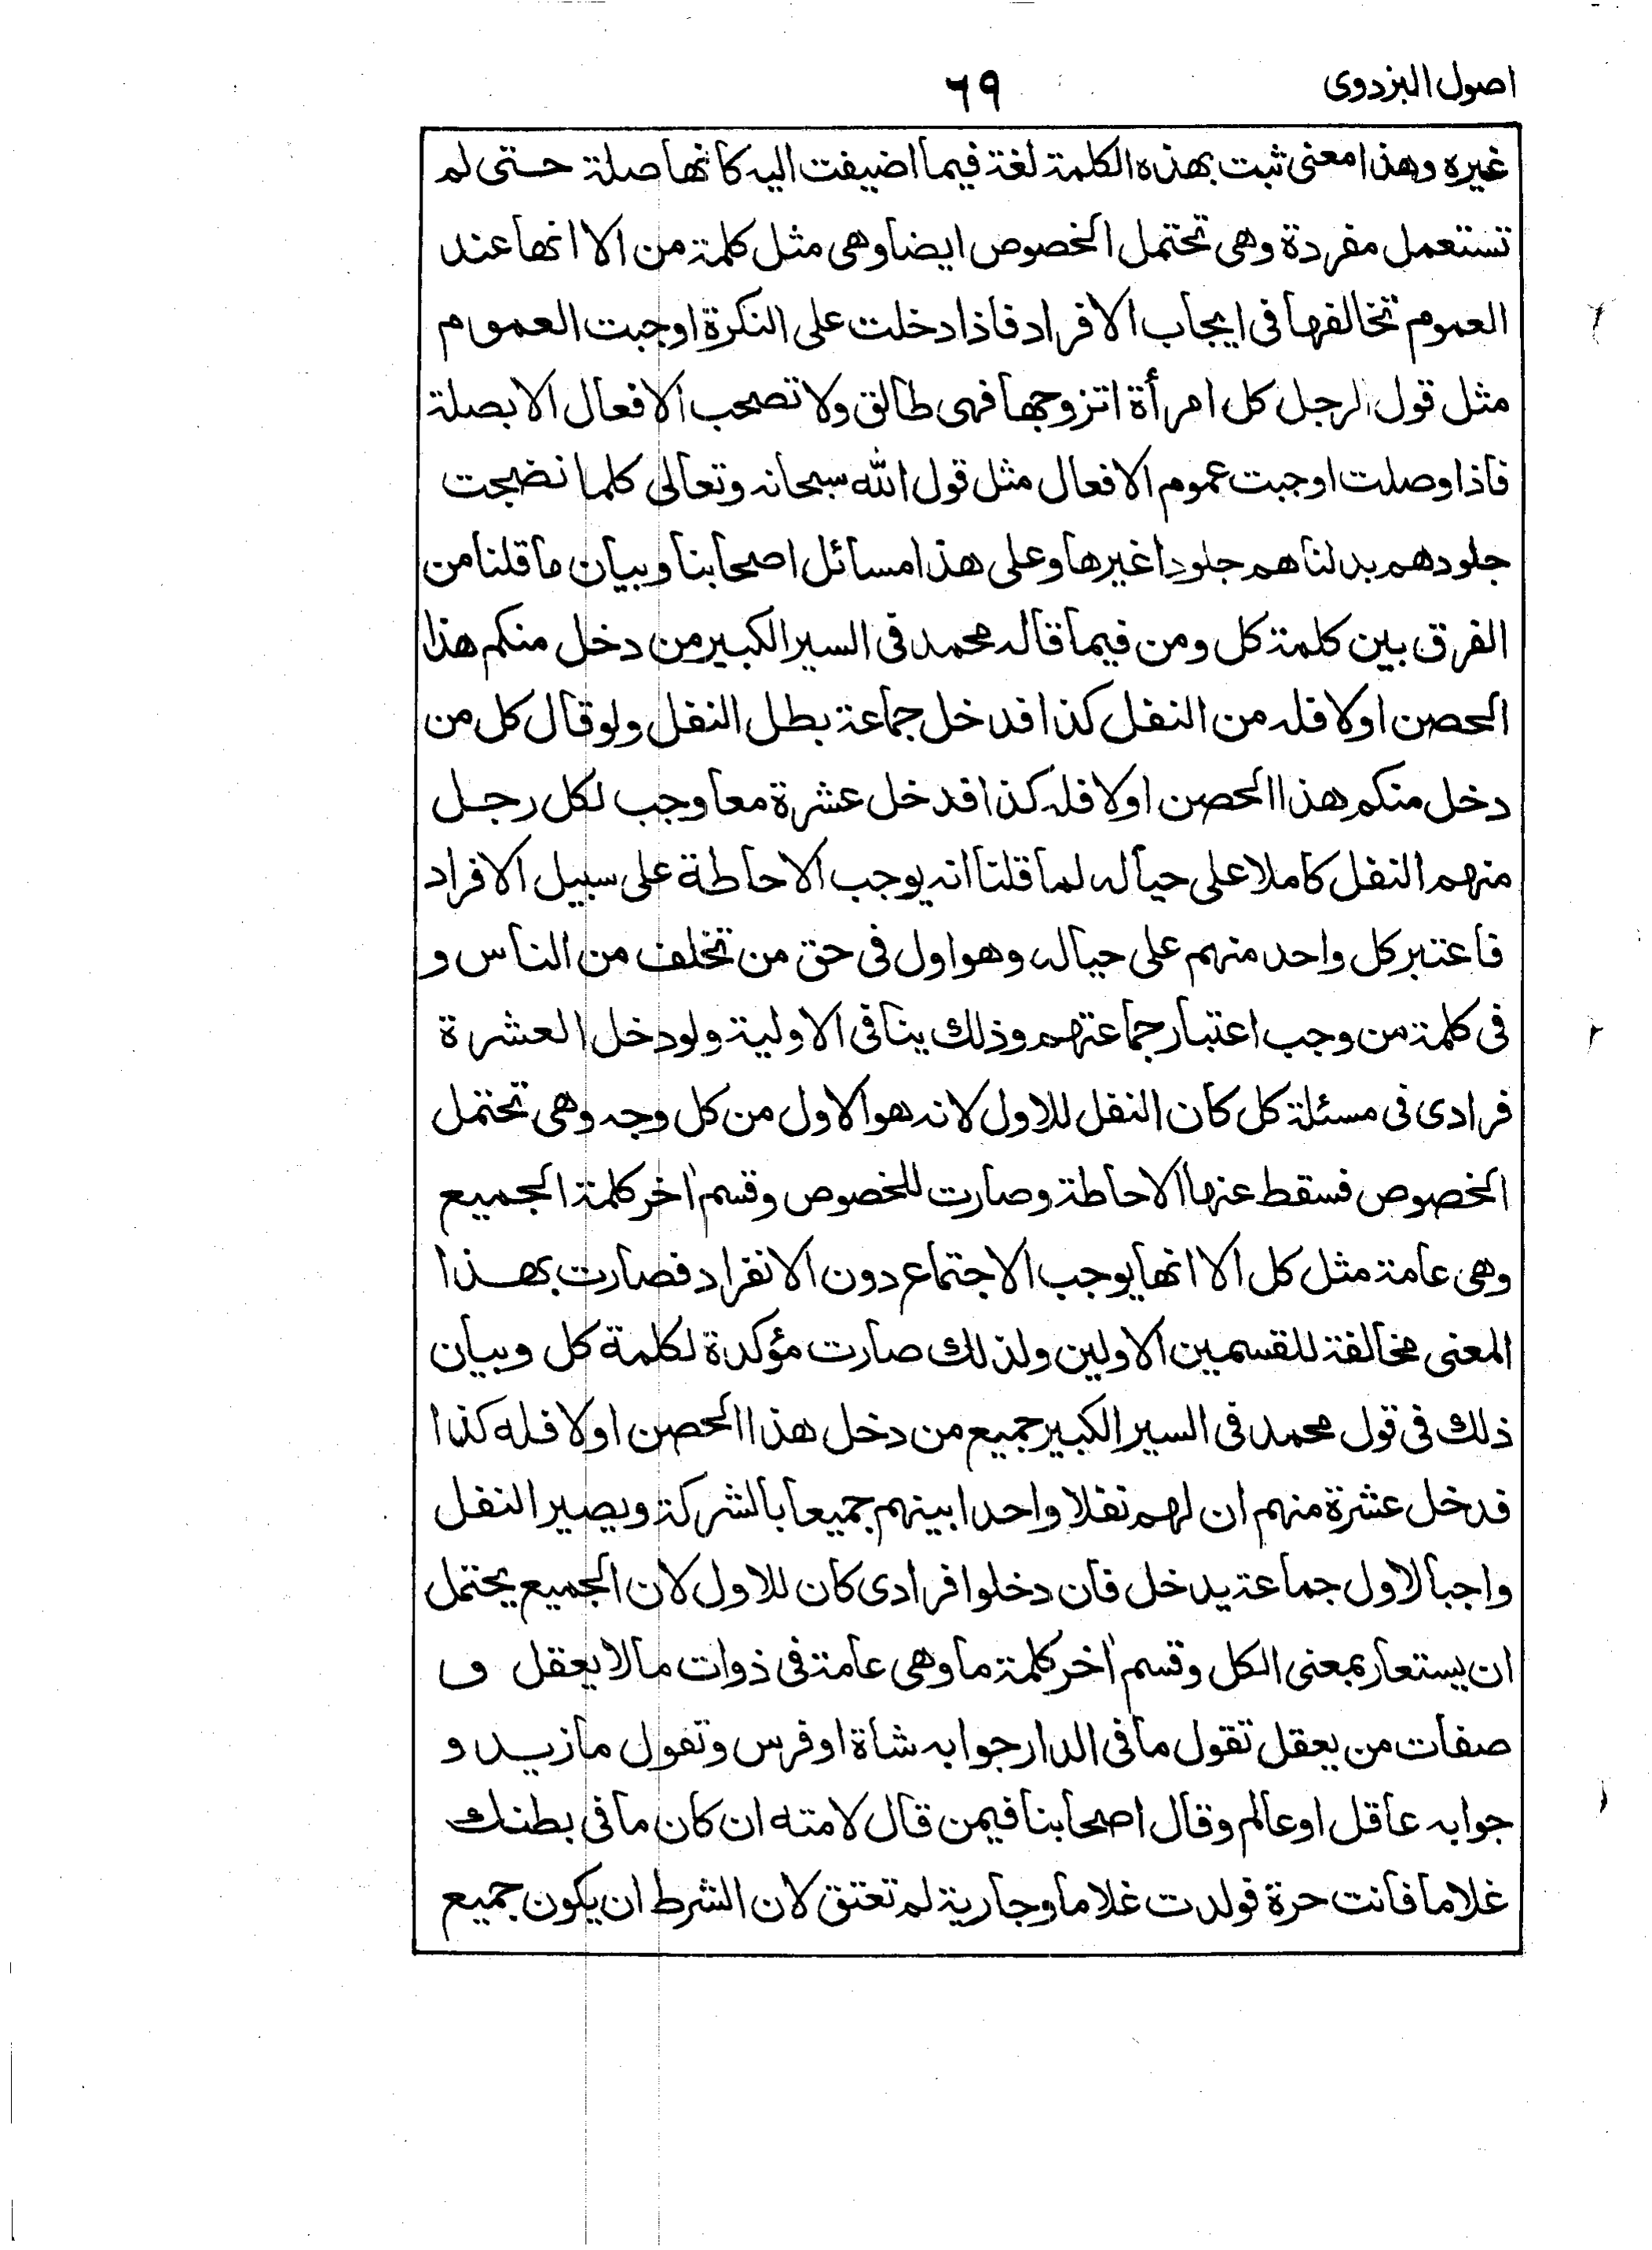 اصول البزدوى ٦٩
غيره وهذا معنى ثبت بهذه الكلمة لغة فيما اضيفت اليه كانها صلة حتى لم
تستعمل مفردة وهى تحتمل الخصوص ايضا وهى مثل كلمة من الا انها عند
العموم تخالفها فى ايجاب الافراد فاذا دخلت على النكرة اوجبت العموم
مثل قول الرجل كل امرأة اتزوجها فهى طالق ولا تصحب الافعال الا بصلة
فاذا وصلت اوجبت عموم الافعال مثل قول الله سبحانه وتعالى كلما نضجت
جلودهم بدلناهم جلودا غيرها وعلى هذا مسائل اصحابنا وبيان ما قلنا من
الفرق بين كلمة كل ومن فيما قاله محمد فى السير الكبير من دخل منكم هذا
الحصن اولا فله من النفل كذا فدخل جماعة بطل النفل ولو قال كل من
دخل منكم هذا الحصن اولا فله كذا فدخل عشرة معا وجب لكل رجل
منهم النفل كاملا على حياله لما قلنا انه يوجب الاحاطة على سبيل الافراد
فاعتبر كل واحد منهم على حياله وهو اول فى حق من تخلف من الناس و
فى كلمة من وجب اعتبار جماعتهم وذلك ينافى الاولية ولو دخل العشرة
فرادى فى مسئلة كل كان النفل للاول لانه هو الاول من كل وجه وهى تحتمل
الخصوص فسقط عنها الاحاطة وصارت للخصوص وقسم اٰخر كلمة الجميع
وهى عامة مثل كل الا انها يوجب الاجتماع دون الانفراد فصارت بهذا
المعنى مخالفة للقسمين الاولين ولذلك صارت مؤكدة لكلمة كل وبيان
ذلك فى قول محمد فى السير الكبير جميع من دخل هذا الحصن اولا فله كذا
فدخل عشرة منهم ان لهم نفلا واحدا بينهم جميعا بالشركة ويصير النفل
واجبا لاول جماعة يدخل فان دخلوا فرادى كان للاول لان الجميع يحتمل
ان يستعار بمعنى الكل وقسم اٰخر كلمة ما وهى عامة فى ذوات ما لا يعقل و
صفات من يعقل تقول ما فى الدار جوابه شاة او فرس وتقول ما زيد و
جوابه عاقل او عالم وقال اصحابنا فيمن قال لامته ان كان ما فى بطنك
غلاما فانت حرة فولدت غلاما وجارية لم تعتق لان الشرط ان يكون جميع